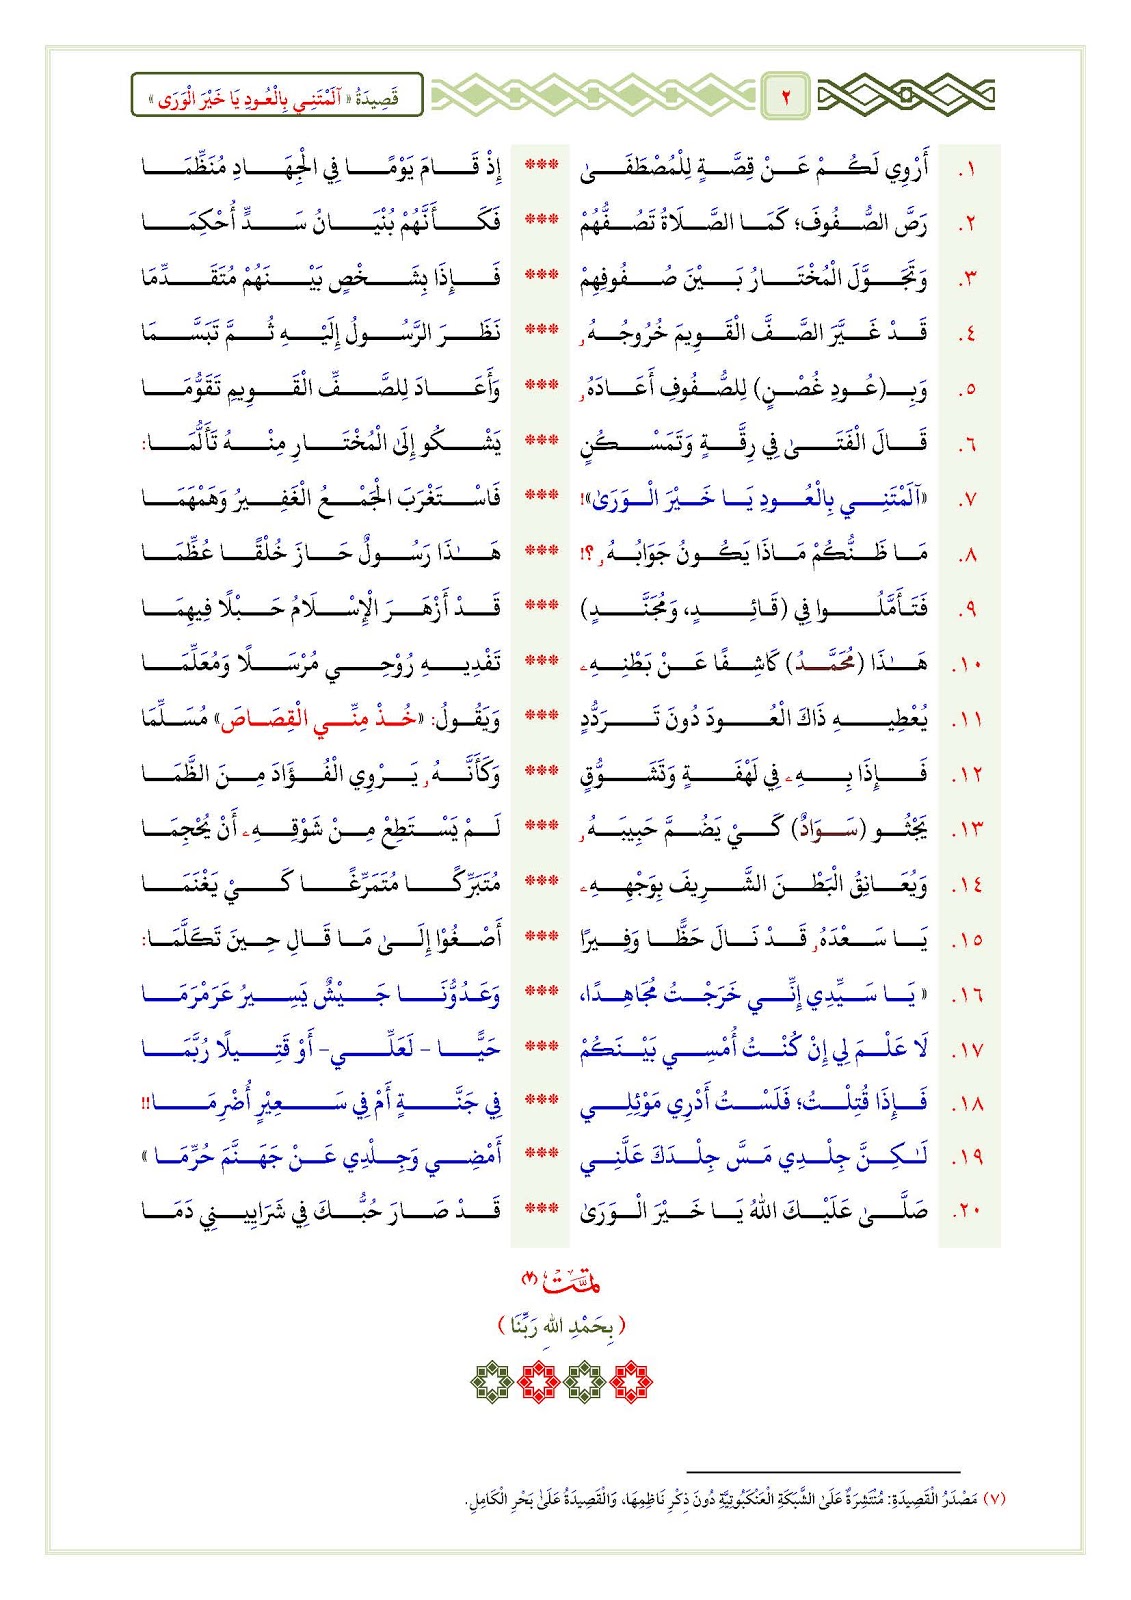 قَصِيدَةُ « آلَمْتَنِي بِالْعُودِ يَا خَيْرَ الْوَرَى »
٢
١. أَرْوِي لَكُمْ عَنْ قِصَّةٍ لِلْمُصْطَفَىٰ *** إِذْ قَامَ يَوْمًا فِي الْجِهَادِ مُنَظِّمَا
٢. رَصَّ الصُّفُوفَ؛ كَمَا الصَّلَاةُ تَصُفُّهُمْ *** فَكَأَنَّهُمْ بُنْيَانُ سَدٍّ أُحْكِمَا
٣. وَتَجَوَّلَ الْمُخْتَارُ بَيْنَ صُفُوفِهِمْ *** فَإِذَا بِشَخْصٍ بَيْنَهُمْ مُتَقَدِّمَا
٤. قَدْ غَيَّرَ الصَّفَّ الْقَوِيمَ خُرُوجُهُۥ *** نَظَرَ الرَّسُولُ إِلَيْهِ ثُمَّ تَبَسَّمَا
٥. وَبِـ(عُودِ غُصْنٍ) لِلصُّفُوفِ أَعَادَهُۥ *** وَأَعَادَ لِلصَّفِّ الْقَوِيمِ تَقَوُّمَا
٦. قَالَ الْفَتَىٰ فِي رِقَّةٍ وَتَمَسْكُنٍ *** يَشْكُو إِلَىٰ الْمُخْتَارِ مِنْهُ تَأَلُّمَا:
٧. «آلَمْتَنِي بِالْعُودِ يَا خَيْرَ الْوَرَىٰ»! *** فَاسْتَغْرَبَ الْجَمْعُ الْغَفِيرُ وَهَمْهَمَا
٨. مَا ظَنُّكُمْ مَاذَا يَكُونُ جَوَابُهُۥ ؟! *** هَٰذَا رَسُولٌ حَازَ خُلْقًا عُظِّمَا
٩. فَتَأَمَّلُوا فِي (قَائِدٍ، وَمُجَنَّدٍ) *** قَدْ أَزْهَرَ الْإِسْلَامُ حَبْلًا فِيهِمَا
١٠. هَٰذَا (مُحَمَّدُ) كَاشِفًا عَنْ بَطْنِهِۦ *** تَفْدِيهِ رُوْحِي مُرْسَلًا وَمُعَلِّمَا
١١. يُعْطِيهِ ذَاكَ الْعُودَ دُونَ تَرَدُّدٍ *** وَيَقُولُ: «خُذْ مِنِّي الْقِصَاصَ» مُسَلِّمَا
١٢. فَإِذَا بِهِۦ فِي لَهْفَةٍ وَتَشَوُّقٍ *** وَكَأَنَّهُۥ يَرْوِي الْفُؤَادَ مِنَ الظَّمَا
١٣. يَجْثُو (سَوَادٌ) كَيْ يَضُمَّ حَبِيبَهُۥ *** لَمْ يَسْتَطِعْ مِنْ شَوْقِهِۦ أَنْ يُحْجِمَا
١٤. وَيُعَانِقُ الْبَطْنَ الشَّرِيفَ بِوَجْهِهِۦ *** مُتَبَرِّكًا مُتَمَرِّغًا كَيْ يَغْنَمَا
١٥. يَا سَعْدَهُۥ قَدْ نَالَ حَظًّا وَفِيرًا *** أَصْغُوْا إِلَىٰ مَا قَالِ حِينَ تَكَلَّمَا:
١٦. « يَا سَيِّدِي إِنِّي خَرَجْتُ مُجَاهِدًا، *** وَعَدُوُّنَا جَيْشٌ يَسِيرُ عَرَمْرَمَا
١٧. لَا عَلْمَ لِي إِنْ كُنْتُ أُمْسِي بَيْنَكُمْ *** حَيًّا - لَعَلِّي- أَوْ قَتِيلًا رُبَّمَا
١٨. فَإِذَا قُتِلْتُ؛ فَلَسْتُ أَدْرِي مَوْئِلِي *** فِي جَنَّةٍ أَمْ فِي سَعِيْرٍ أُضْرِمَا!!
١٩. لَٰكِنَّ جِلْدِي مَسَّ جِلْدَكَ عَلَّنِي *** أَمْضِي وَجِلْدِي عَنْ جَهَنَّمَ حُرِّمَا »
٢٠. صَلَّىٰ عَلَيْكَ اللهُ يَا خَيْرَ الْوَرَىٰ *** قَدْ صَارَ حُبُّكَ فِي شَرَايِينِي دَمَا
تَمَّتْ (٧)
( بِحَمْدِ اللهِ رَبِّنَا )
(٧) مَصْدَرُ الْقَصِيدَةِ: مُنْتَشِرَةٌ عَلَىٰ الشَّبَكَةِ الْعَنْكَبُوتِيَّةِ دُونَ ذِكْرِ نَاظِمِهَا، وَالْقَصِيدَةُ عَلَىٰ بَحْرِ الْكَامِلِ.